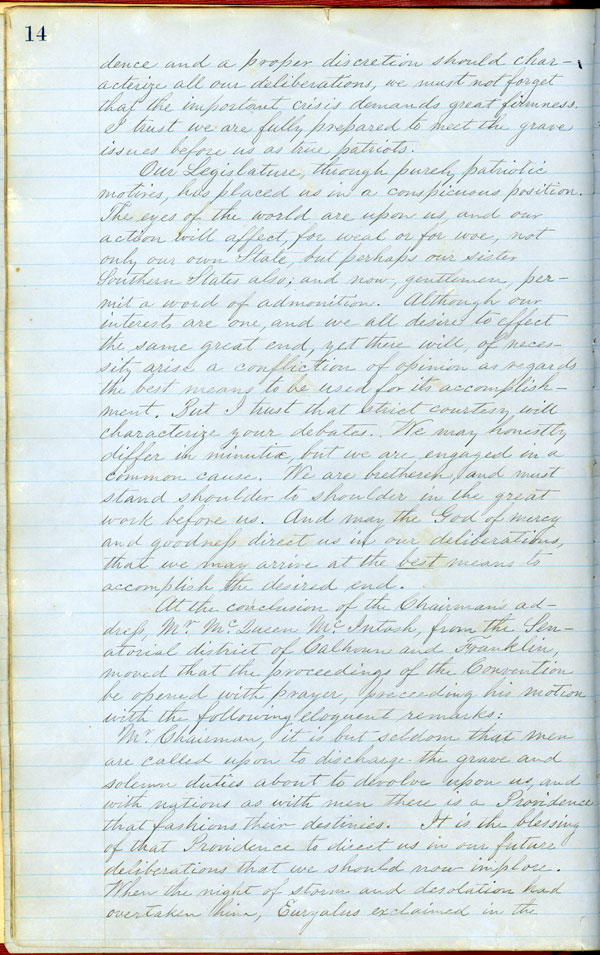 14
dence and a proper discretion should char-
acterize all our deliberations, we must not forget
that the important crisis demands great firmness.
I trust we are fully prepared to meet the grave
issues before us as true patriots.
Our Legislature, through purely patriotic
motives, has placed us in a conspicuous position.
The eyes of the world are upon us, and our
action will affect, for weal or for woe, not
only our own State, but perhaps our sister
Southern States also; and now, gentlemen, per-
mit a word of admonition. Although our
interests are one, and we all desire to effect
the same great end, yet there will, of neces-
sity arise a confliction of opinion as regards
the best means to be used for its accomplish-
ment. But I trust that strict courtesy will
characterize your debates. We may honestly
differ in minutiæ, but we are engaged in a
common cause. We are bretheren, and must
stand shoulder to shoulder in the great
work before us. And may the God of mercy
and goodness direct us in our deliberations,
that we may arrive at the best means to
accomplish the desired end.
At the conclusion of the Chairmans ad-
dress, Mr. McQueen McIntosh, from the Sen-
atorial district of Calhoun and Franklin,
moved that the proceedings of the Convention
be opened with prayer, preceeding his motion
with the following eloquent remarks:
Mr. Chairman, it is but seldom that men
are called upon to discharge the grave and
solemn duties about to devolve upon us, and
with nations as with men there is a Providence
that fashions their destinies. It is the blessing
of that Providence to direct us in our future
deliberations that we should now implore.
When the night of storm and desolation had
overtaken him, Euryalus exclaimed in the